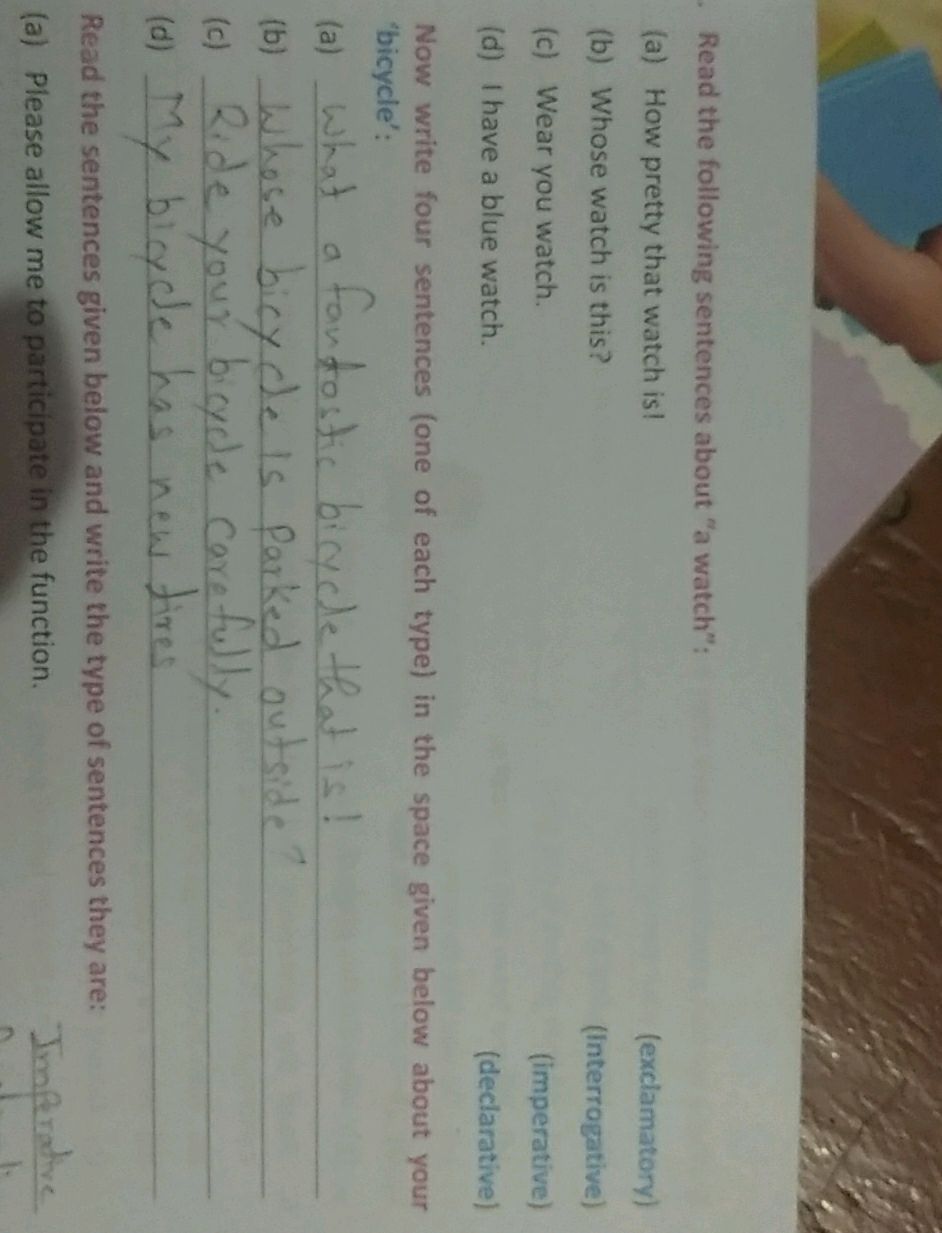 Read the following sentences about "a watch":
(a) How pretty that watch is! (exclamatory)
(b) Whose watch is this? (Interrogative)
(c) Wear you watch. (imperative)
(d) I have a blue watch. (declarative)
Now write four sentences (one of each type) in the space given below about your
'bicycle':
(a) What a fantastic bicycle that is!
(b) Whose bicycle is parked outside?
(c) Ride your bicycle carefully.
(d) My bicycle has new tires
Read the sentences given below and write the type of sentences they are:
(a) Please allow me to participate in the function. Imperative